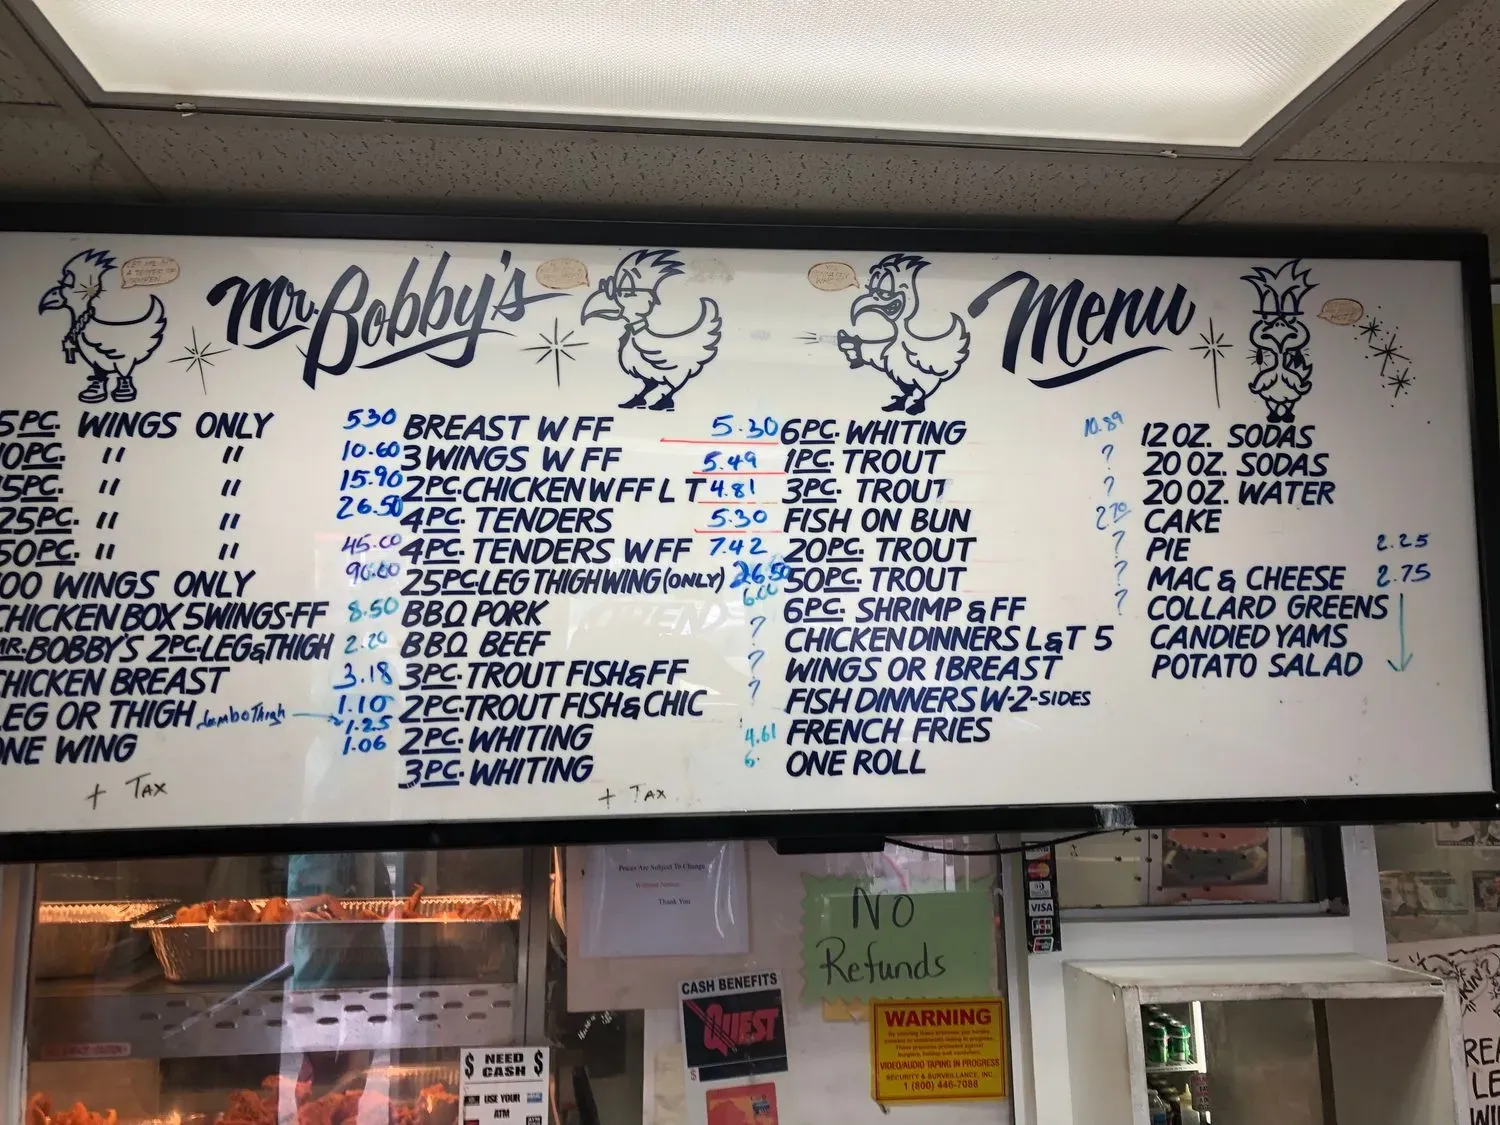 Mr. Bobby's Menu
5PC. WINGS ONLY 530
10PC. " " 10.60
5PC. " " 15.90
25PC. " " 26.50
50PC. " " 45.00
100 WINGS ONLY 90.00
CHICKEN BOX 5WINGS-FF 8.50
MR. BOBBY'S 2PC. LEG&THIGH 2.20
CHICKEN BREAST 3.18
LEG OR THIGH JumboThigh 1.10
1.25
ONE WING 1.06
+ TAX
BREAST W FF 5.30
3 WINGS W FF 5.49
2PC. CHICKEN W FF L T 4.81
4PC. TENDERS 5.30
4PC. TENDERS W FF 7.42
25PC LEG THIGH WING (ONLY) 26.50
BBQ PORK 6.00
BBQ BEEF ?
3PC. TROUT FISH & FF ?
2PC. TROUT FISH & CHIC ?
2PC. WHITING 4.61
3PC. WHITING 6.
+ TAX
6PC. WHITING 10.89
1PC. TROUT ?
3PC. TROUT ?
FISH ON BUN 2.70
20PC. TROUT ?
50PC. TROUT ?
6PC. SHRIMP & FF ?
CHICKEN DINNERS L&T 5
WINGS OR 1 BREAST
FISH DINNERS W-2-SIDES
FRENCH FRIES
ONE ROLL
12 OZ. SODAS
20 OZ. SODAS
20 OZ. WATER
CAKE
PIE 2.25
MAC & CHEESE 2.75
COLLARD GREENS
CANDIED YAMS
POTATO SALAD
Prices Are Subject To Change
Without Notice
Thank You
NO
Refunds
CASH BENEFITS
QUEST
WARNING
VIDEO/AUDIO TAPING IN PROGRESS
SECURITY & SURVEILLANCE, INC.
1 (800) 446-7088
$ NEED $
CASH
USE YOUR
ATM
VISA
JCB